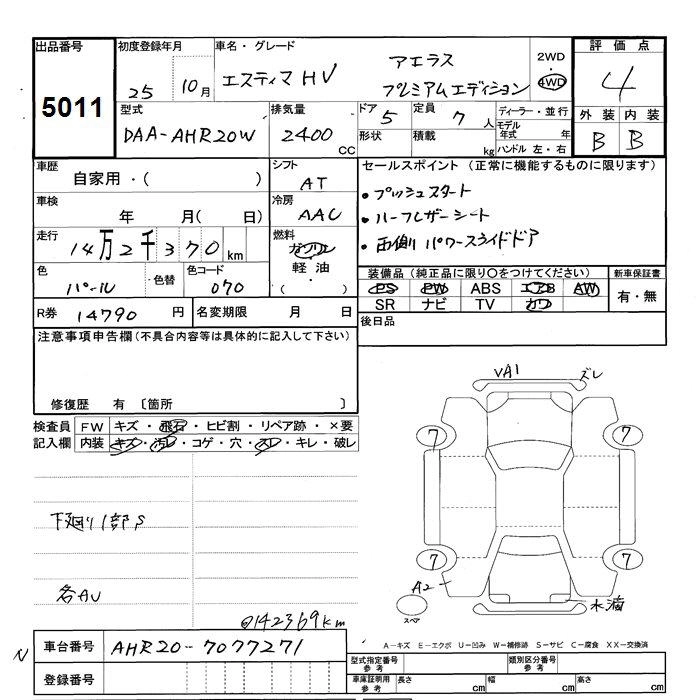 出品番号
5011
初度登録年月
25 10月
車名・グレード
エスティマHV アエラス
プレミアムエディション
2WD
・
4WD
評価点
4
外装 内装
B B
型式
DAA-AHR20W
排気量
2400 CC
ドア 5
形状
定員 7 人
積載 kg
ディーラー・並行
モデル
年式 年
ハンドル 左・右
車歴
自家用・( )
シフト
AT
車検
年 月( 日)
冷房
AAC
走行
14万2千370 km
燃料
ガソリン
軽油
( )
色
パール
色替
色コード
070
R券 14790 円
名変期限 月 日
セールスポイント (正常に機能するものに限ります)
・プッシュスタート
・ハーフレザーシート
・両側パワースライドドア
装備品 (純正品に限り○をつけてください)
PS PW ABS エアB AW
SR ナビ TV カワ
新車保証書
有・無
後日品
注意事項申告欄 (不具合内容等は具体的に記入して下さい)
修復歴 有 〔箇所 〕
検査員
記入欄
FW キズ・飛石・ヒビ割・リペア跡・×要
内装 キズ・汚レ・コゲ・穴・スレ・キレ・破レ
下廻り1部S
各AU
@142369km
VA1
ズレ
7
7
7
7
A2
水滴
スペア
N
車台番号 AHR20-7077271
登録番号
A-キズ E-エクボ U-凹み W-補修跡 S-サビ C-腐食 XX-交換済
型式指定番号
参考
類別区分番号
参考
車庫証明用
参考
長さ cm
幅 cm
高さ cm